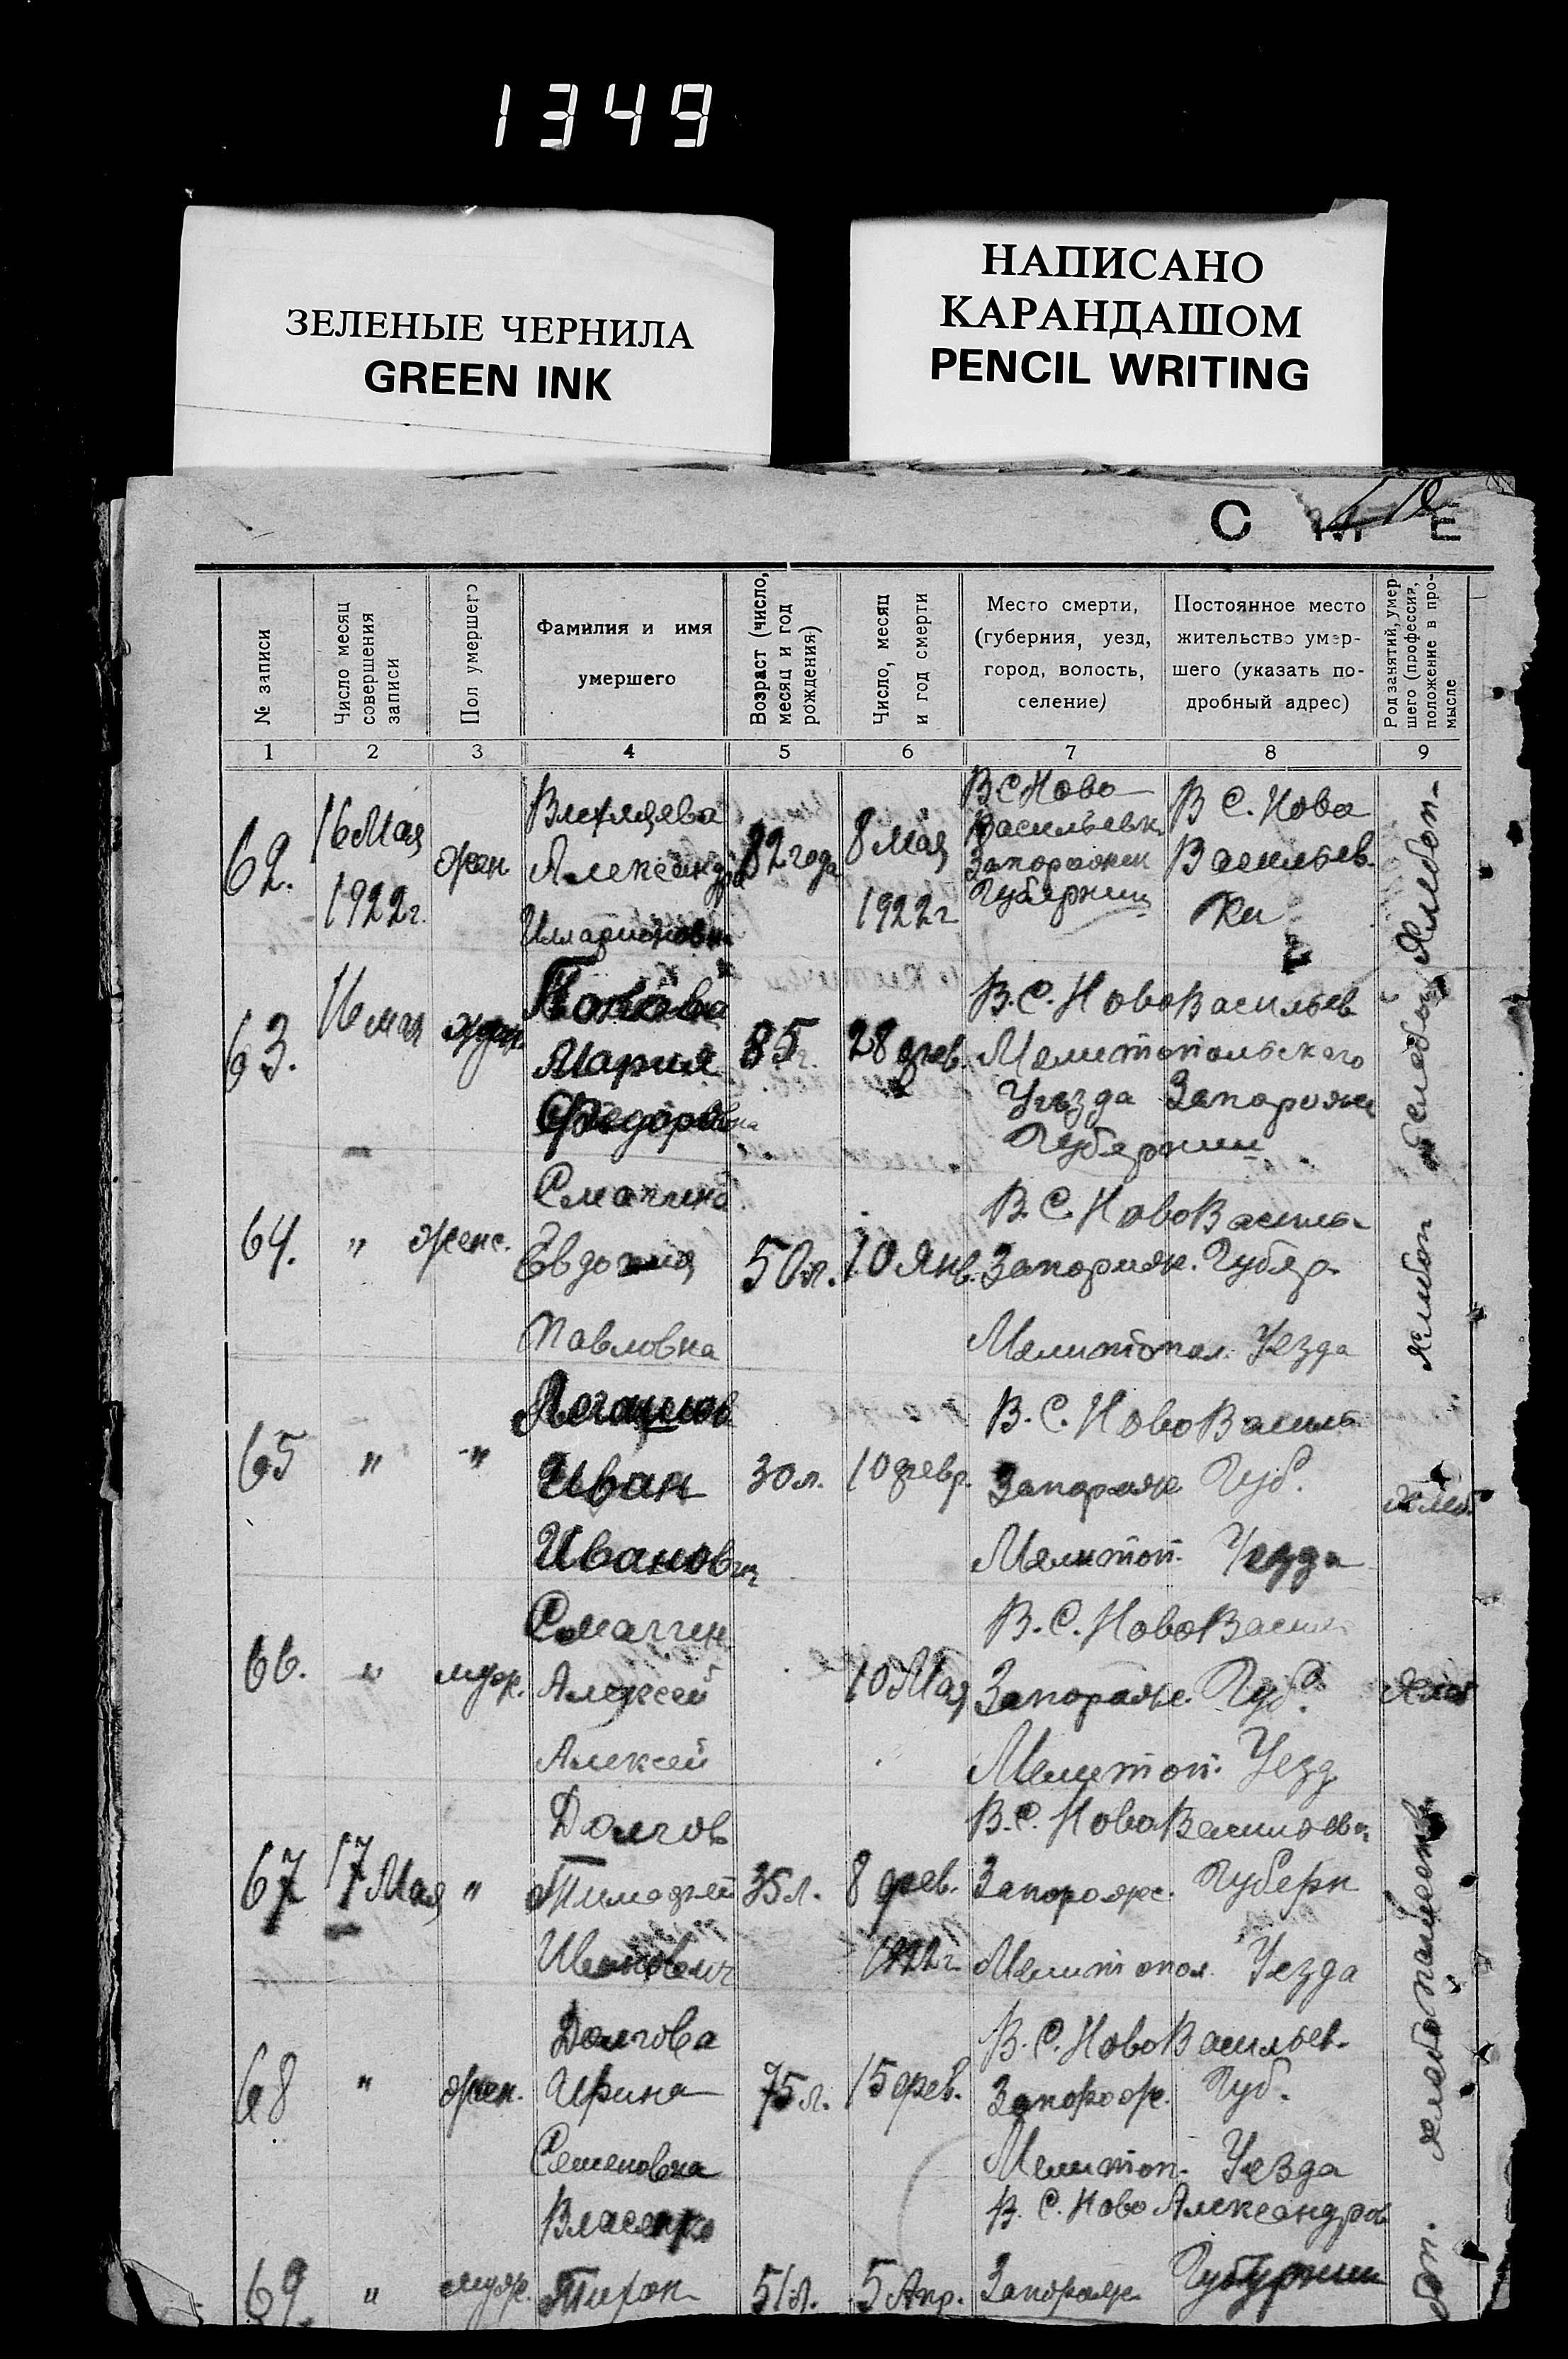 1349
ЗЕЛЕНЫЕ ЧЕРНИЛА
GREEN INK
НАПИСАНО
КАРАНДАШОМ
PENCIL WRITING
С М Е
№ записи
Число месяц
совершения
записи
Пол умершего
Фамилия и имя
умершего
Возраст (число,
месяц и год
рождения)
Число, месяц
и год смерти
Место смерти,
(губерния, уезд,
город, волость,
селение)
Постоянное место
жительство умер-
шего (указать по-
дробный адрес)
Род занятий, умер-
шего (профессия,
положение в про-
мысле
1 2 3 4 5 6 7 8 9
62.
16 Мая
1922 г.
жен
Александра
Илларионовна
82 года
8 мая
1922 г
В С Ново
Васильевк
Запорожск
Губернии
В С. Нова
Васильев.
ки
63.
16 мая
жен.
Попова
Мария
Федоровна
85 г.
28 фев.
В. С. НовоВасильев
Мелитопольского
Уезда Запорожс
Губернии
64.
"
женс.
Евдокия
Павловна
50 л.
10 Янв.
В. С НовоВасиль
Запорож. Губер
Мелитопол. Уезда
65
"
"
Иван
Иванович
30 л.
10 февр.
В. С. НовоВасиль
Запорож Губ.
Мелитоп. Уезда
хлеб.
66.
"
муж.
Смагин
Алексей
Алексей
10 Мая
В. С. НовоВасил
Запорож. Губ.
Мелитоп. Уезд
хлеб
67
17 Мая
"
Долгов
Тимофей
Иванович
35 л.
8 фев.
1922 г
В. С. НовоВасильев
Запорожс. Губерн
Мелитопол. Уезда
хлебопашец
68
"
жен.
Долгова
Ирина
Семеновна
75 л.
15 фев.
В. С. НовоВасильев.
Запорож. Губ.
Мелитоп. Уезда
69.
"
муж.
Власенко
Тихон
51 л.
5 Апр.
В. С. Ново Александров
Запорож Губурнии